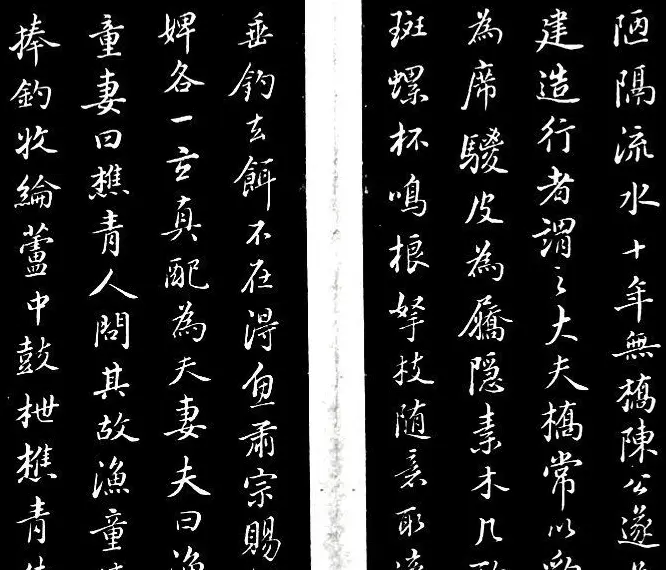 陋隔流水十年無橋陳公遂
建造行者謂之大夫橋常以豹
為席騣皮為屩隱素木几
斑螺杯鳴榔拏枝随意取
垂釣去餌不在得魚肅宗賜
婢各一玄真配為夫妻夫曰漁
童妻曰樵青人問其故漁童
捧釣收綸蘆中鼓枻樵青